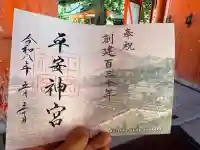 奉祝
創建百三十年
平安神宮
令和八年 五月